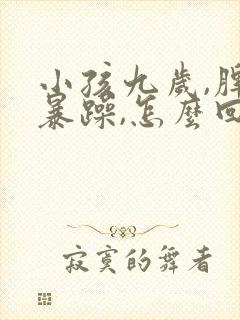 小孩九歲,脾
暴躁,怎麼回
寂寞的舞者